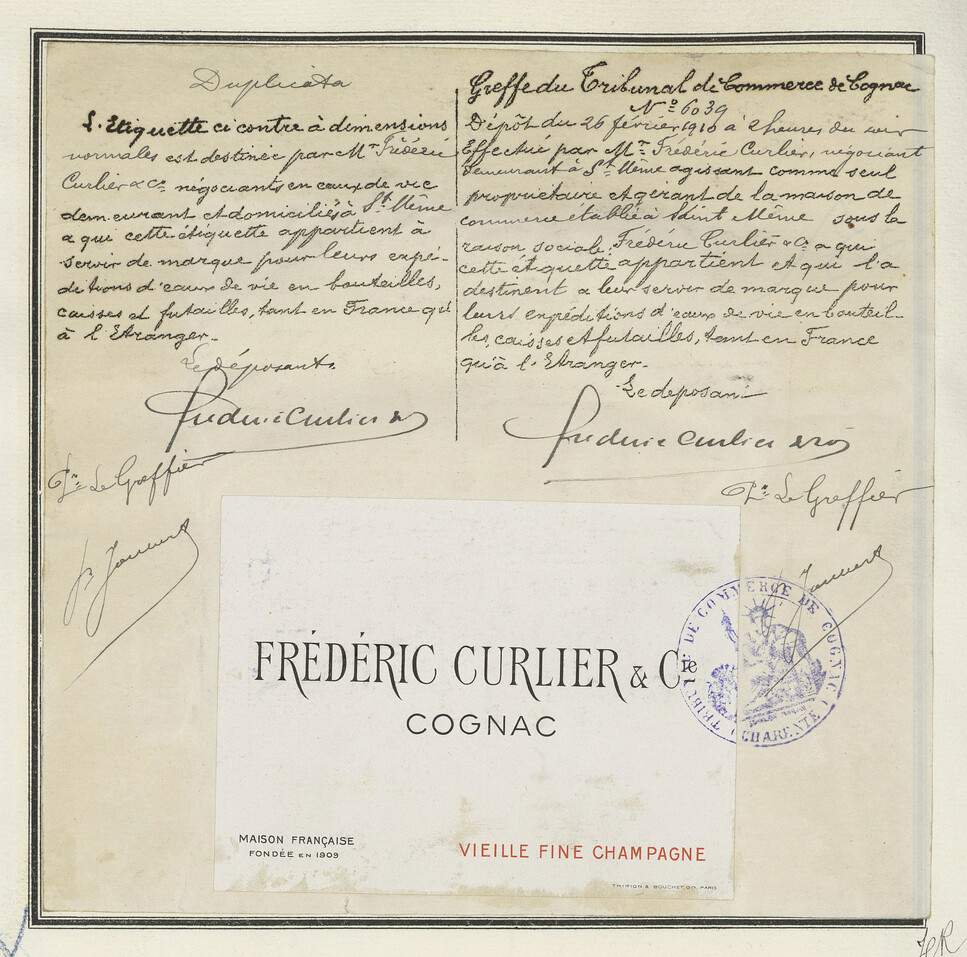 Duplicata
L'Etiquette ci contre à dimensions
normales est destinée par Mr Frédéric
Curlier & Co négociants en eaux de vie
demeurant et domiciliés à St Même
a qui cette étiquette appartient à
servir de marque pour leurs expé-
ditions d'eaux de vie en bouteilles,
caisses et futailles, tant en France qu'
à l'Etranger.
Le déposant.
Frédéric Curlier &
Pr Le Greffier
Greffe du Tribunal de Commerce de Cognac
No 6039
Dépôt du 26 février 1910 à 2 heures du soir
Effectué par Mr Frédéric Curlier, négociant
demeurant à St Même agissant comme seul
propriétaire et gérant de la maison de
commerce établie à Saint Même sous la
raison sociale Frédéric Curlier & Co a qui
cette étiquette appartient et qui l'a
destinent a leur servir de marque pour
leurs expéditions d'eaux de vie en bouteil-
les, caisses et futailles, tant en France
qu'à l'Etranger.
Le deposant
Frédéric Curlier & Co
Pr Le Greffier
TRIBUNAL DE COMMERCE DE COGNAC
(CHARENTE)
FRÉDÉRIC CURLIER & Cie
COGNAC
MAISON FRANÇAISE
FONDÉE EN 1909
VIEILLE FINE CHAMPAGNE
THIRION & BOUCHET, 
PARIS